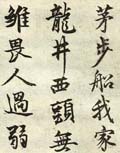 茅步船我家
龍井西頭無
雖畏人過弱